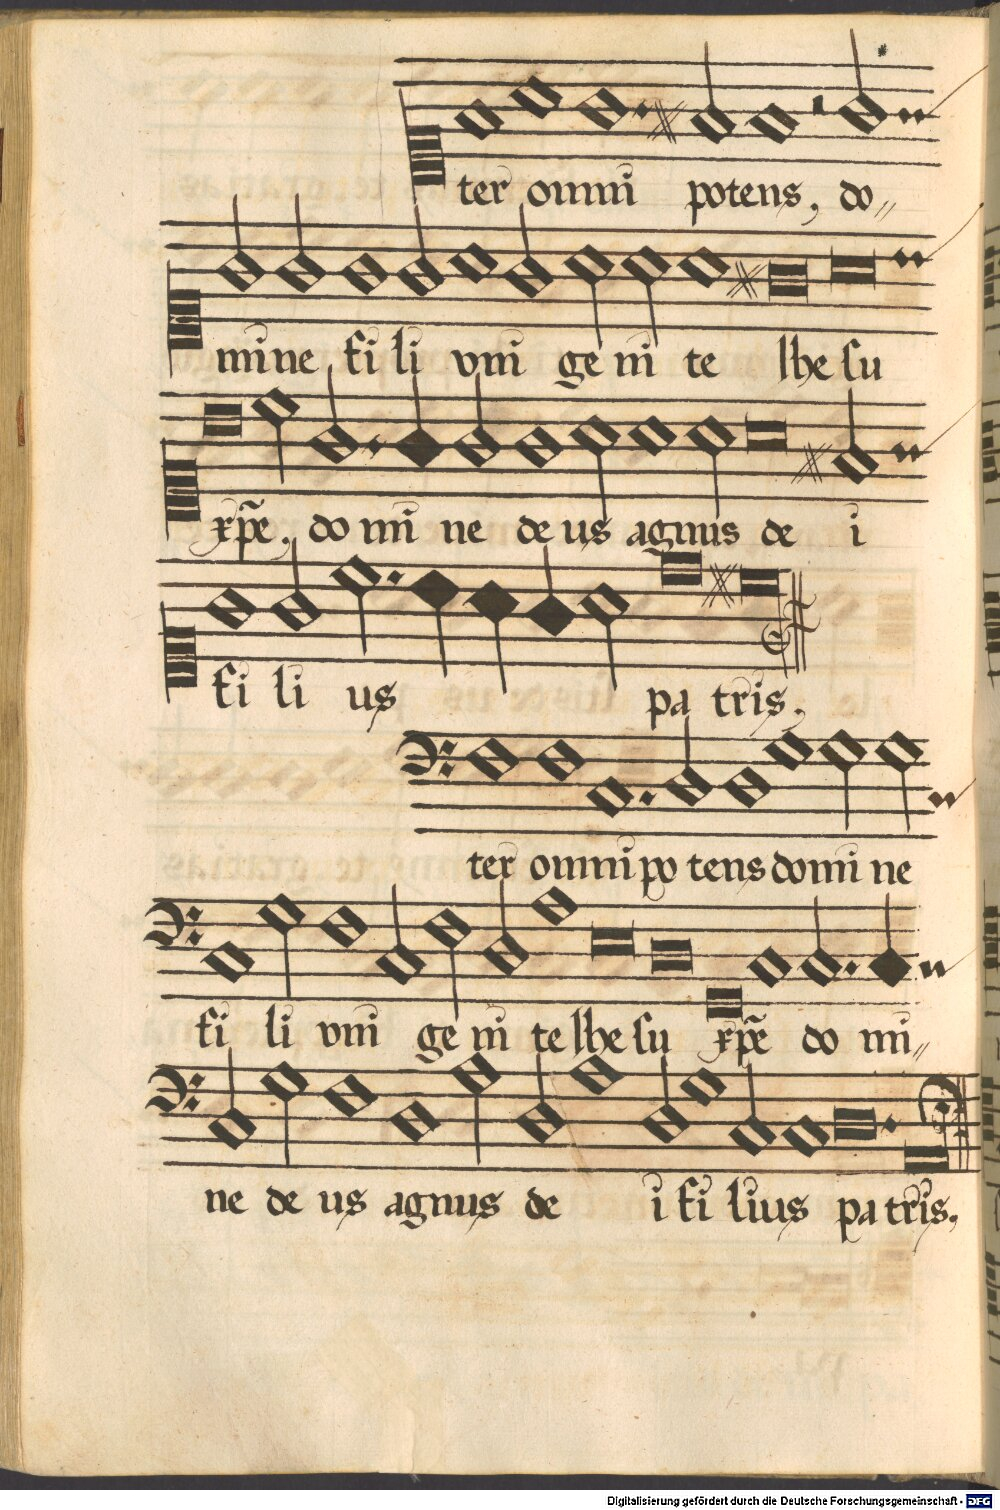 ter omni potens, do„
mine fi li vni ge ni te Ihe su
xp̃e, do mi ne de us agnus de i
fi li us pa tris.
ter omni po tens domi ne
fi li vni ge ni te Ihe su xp̃e do mi„
ne de us agnus de i fi lius pa tris.
Digitalisierung gefördert durch die Deutsche Forschungsgemeinschaft - DFG